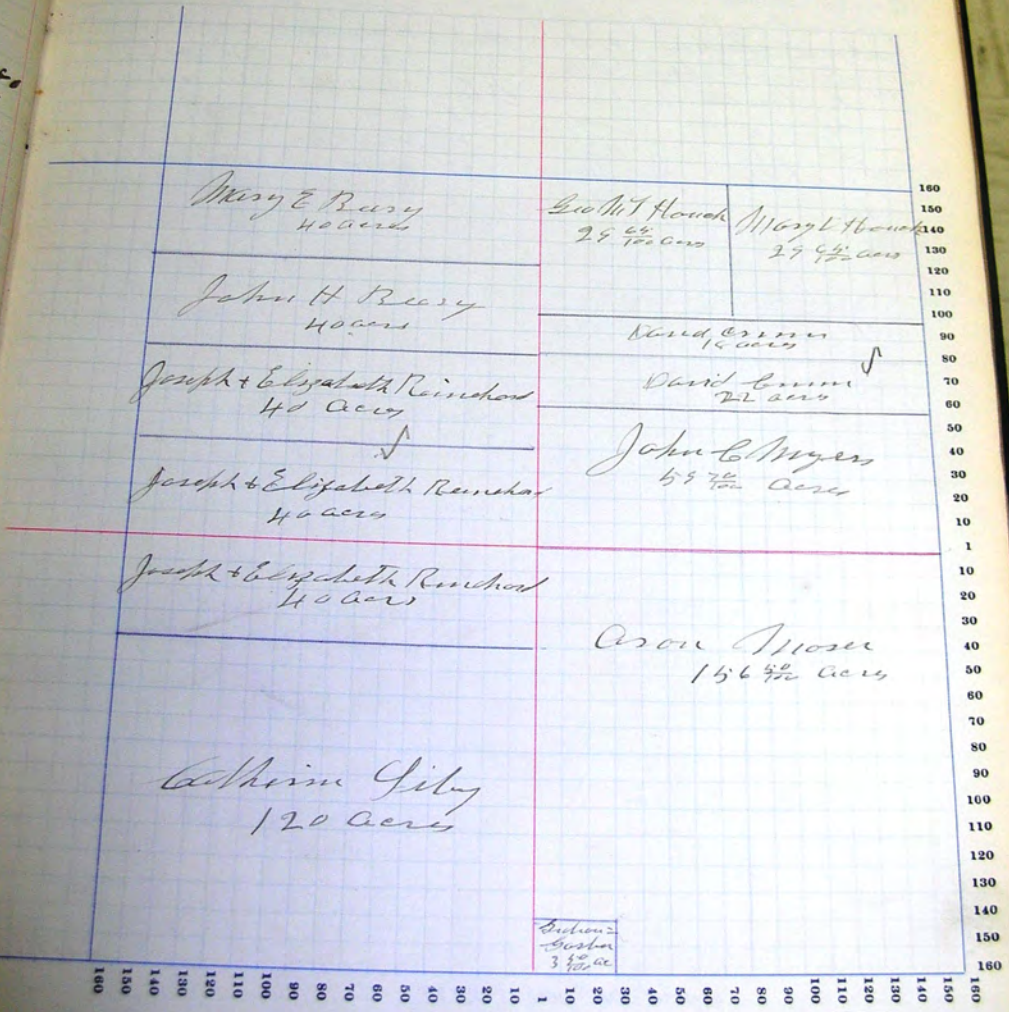 Mary E Beery
40 acres
John H Beery
40 acres
Joseph + Elizabeth Reinehard
40 Acres
Joseph + Elizabeth
40 acres
Joseph + Elizabeth
40 acres
Catherine
120 acres
Geo Houck
29 65/100 acres
Mary E Houck
29 65/100 acres
David
acres
David
22 acres
John C Myers
59 70/100 acres
Aron Moser
156 50/100 Acres
3 50/100 ac
160
150
140
130
120
110
100
90
80
70
60
50
40
30
20
10
1
10
20
30
40
50
60
70
80
90
100
110
120
130
140
150
160
160 150 140 130 120 110 100 90 80 70 60 50 40 30 20 10 1 10 20 30 40 50 60 70 80 90 100 110 120 130 140 150 160